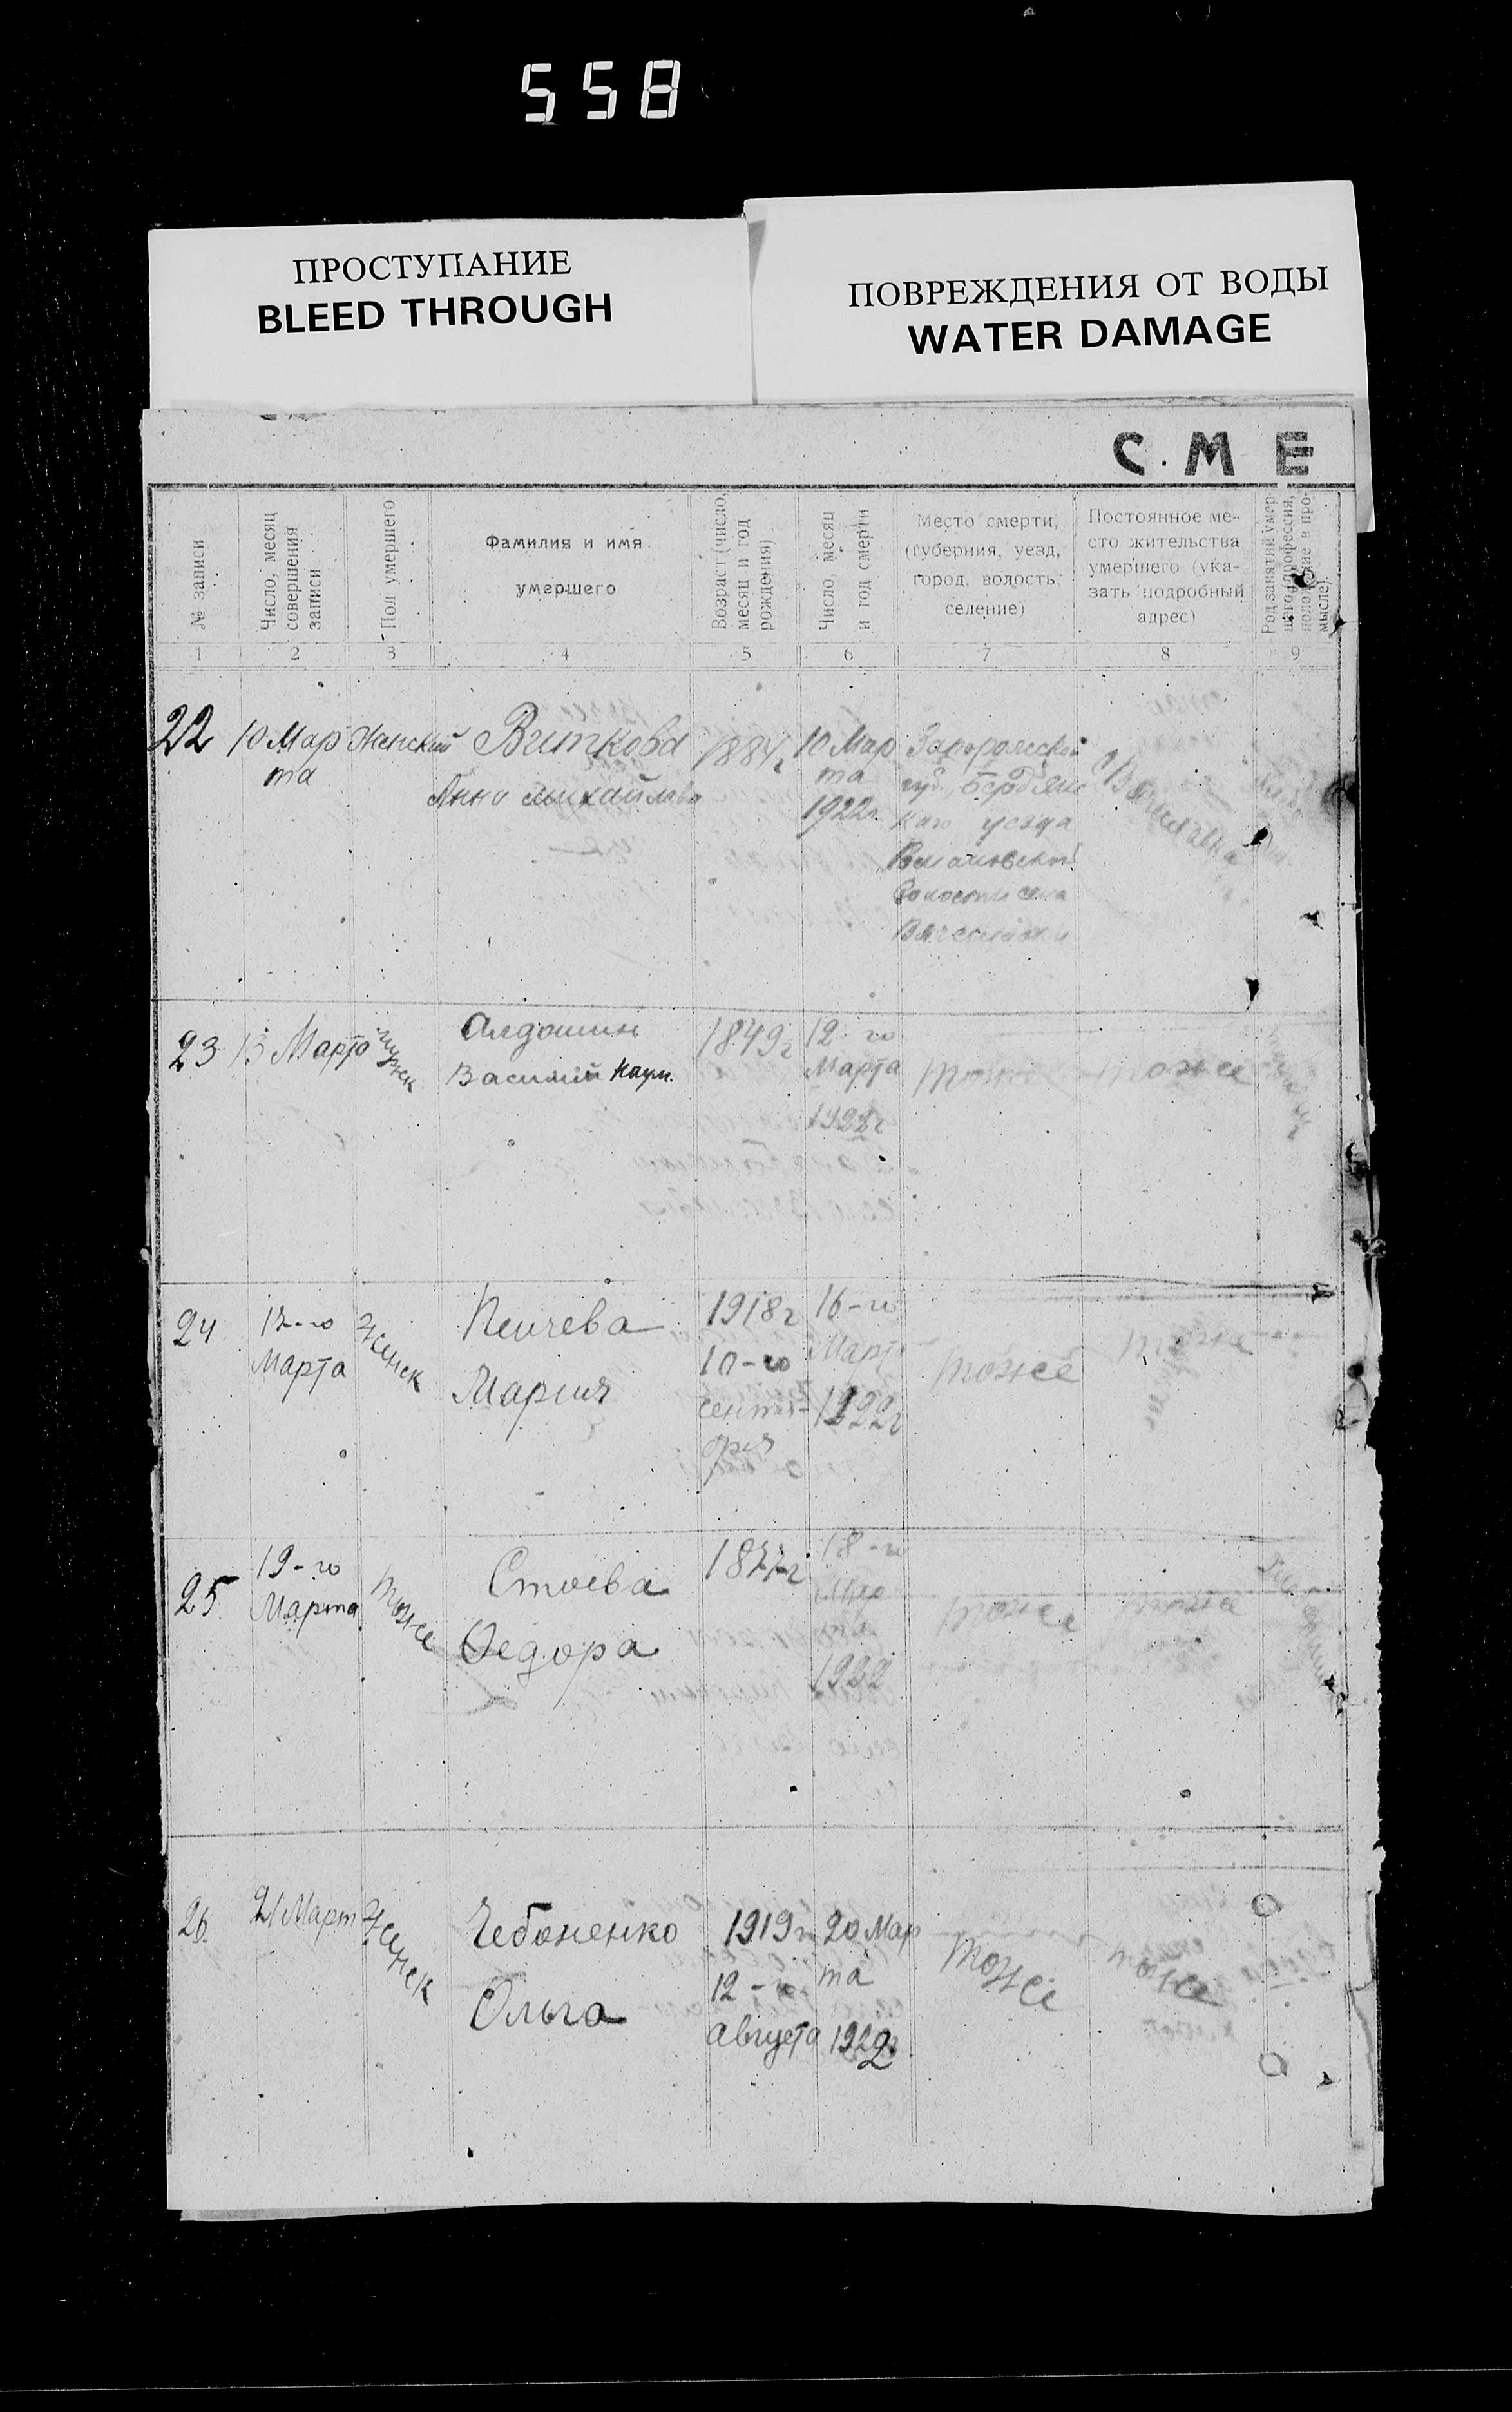 558
ПРОСТУПАНИЕ
BLEED THROUGH
ПОВРЕЖДЕНИЯ ОТ ВОДЫ
WATER DAMAGE
С М Е
№ записи
Число, месяц
совершения
записи
Пол умершего
Фамилия и имя
умершего
Возраст (число,
месяц и год
рождения)
Число, месяц
и год смерти
Место смерти,
(губерния, уезд,
город, волость,
селение)
Постоянное ме-
сто жительства
умершего (ука-
зать подробный
адрес)
Род занятий умер-
шего (профессия,
положение в про-
мысле)
1 2 3 4 5 6 7 8 9
22
10 Мар
та
Женский
Виткова
Анна Михайлова
1884г
10 Мар
та
1922г.
Запорожской
губ. Бердянс
каго уезда
волости села
Вячеславки
23
13 Марта
мужск
Алдошин
Василий Наум.
1849г
12 го
Марта
1922г
тоже
тоже
24
17-го
Марта
Женск
Пейчева
Мария
1918г
10-го
сентя-
бря
16-го
Март
1922г
тоже
тоже
25
19-го
Марта
тоже
Стоева
Федора
1877г
18-го
Мар
та
1922
тоже
тоже
26.
21 Март
Женск
Чебоненко
Ольга
1919г
12-го
Августа
20 Мар
та
1922г
тоже
тоже